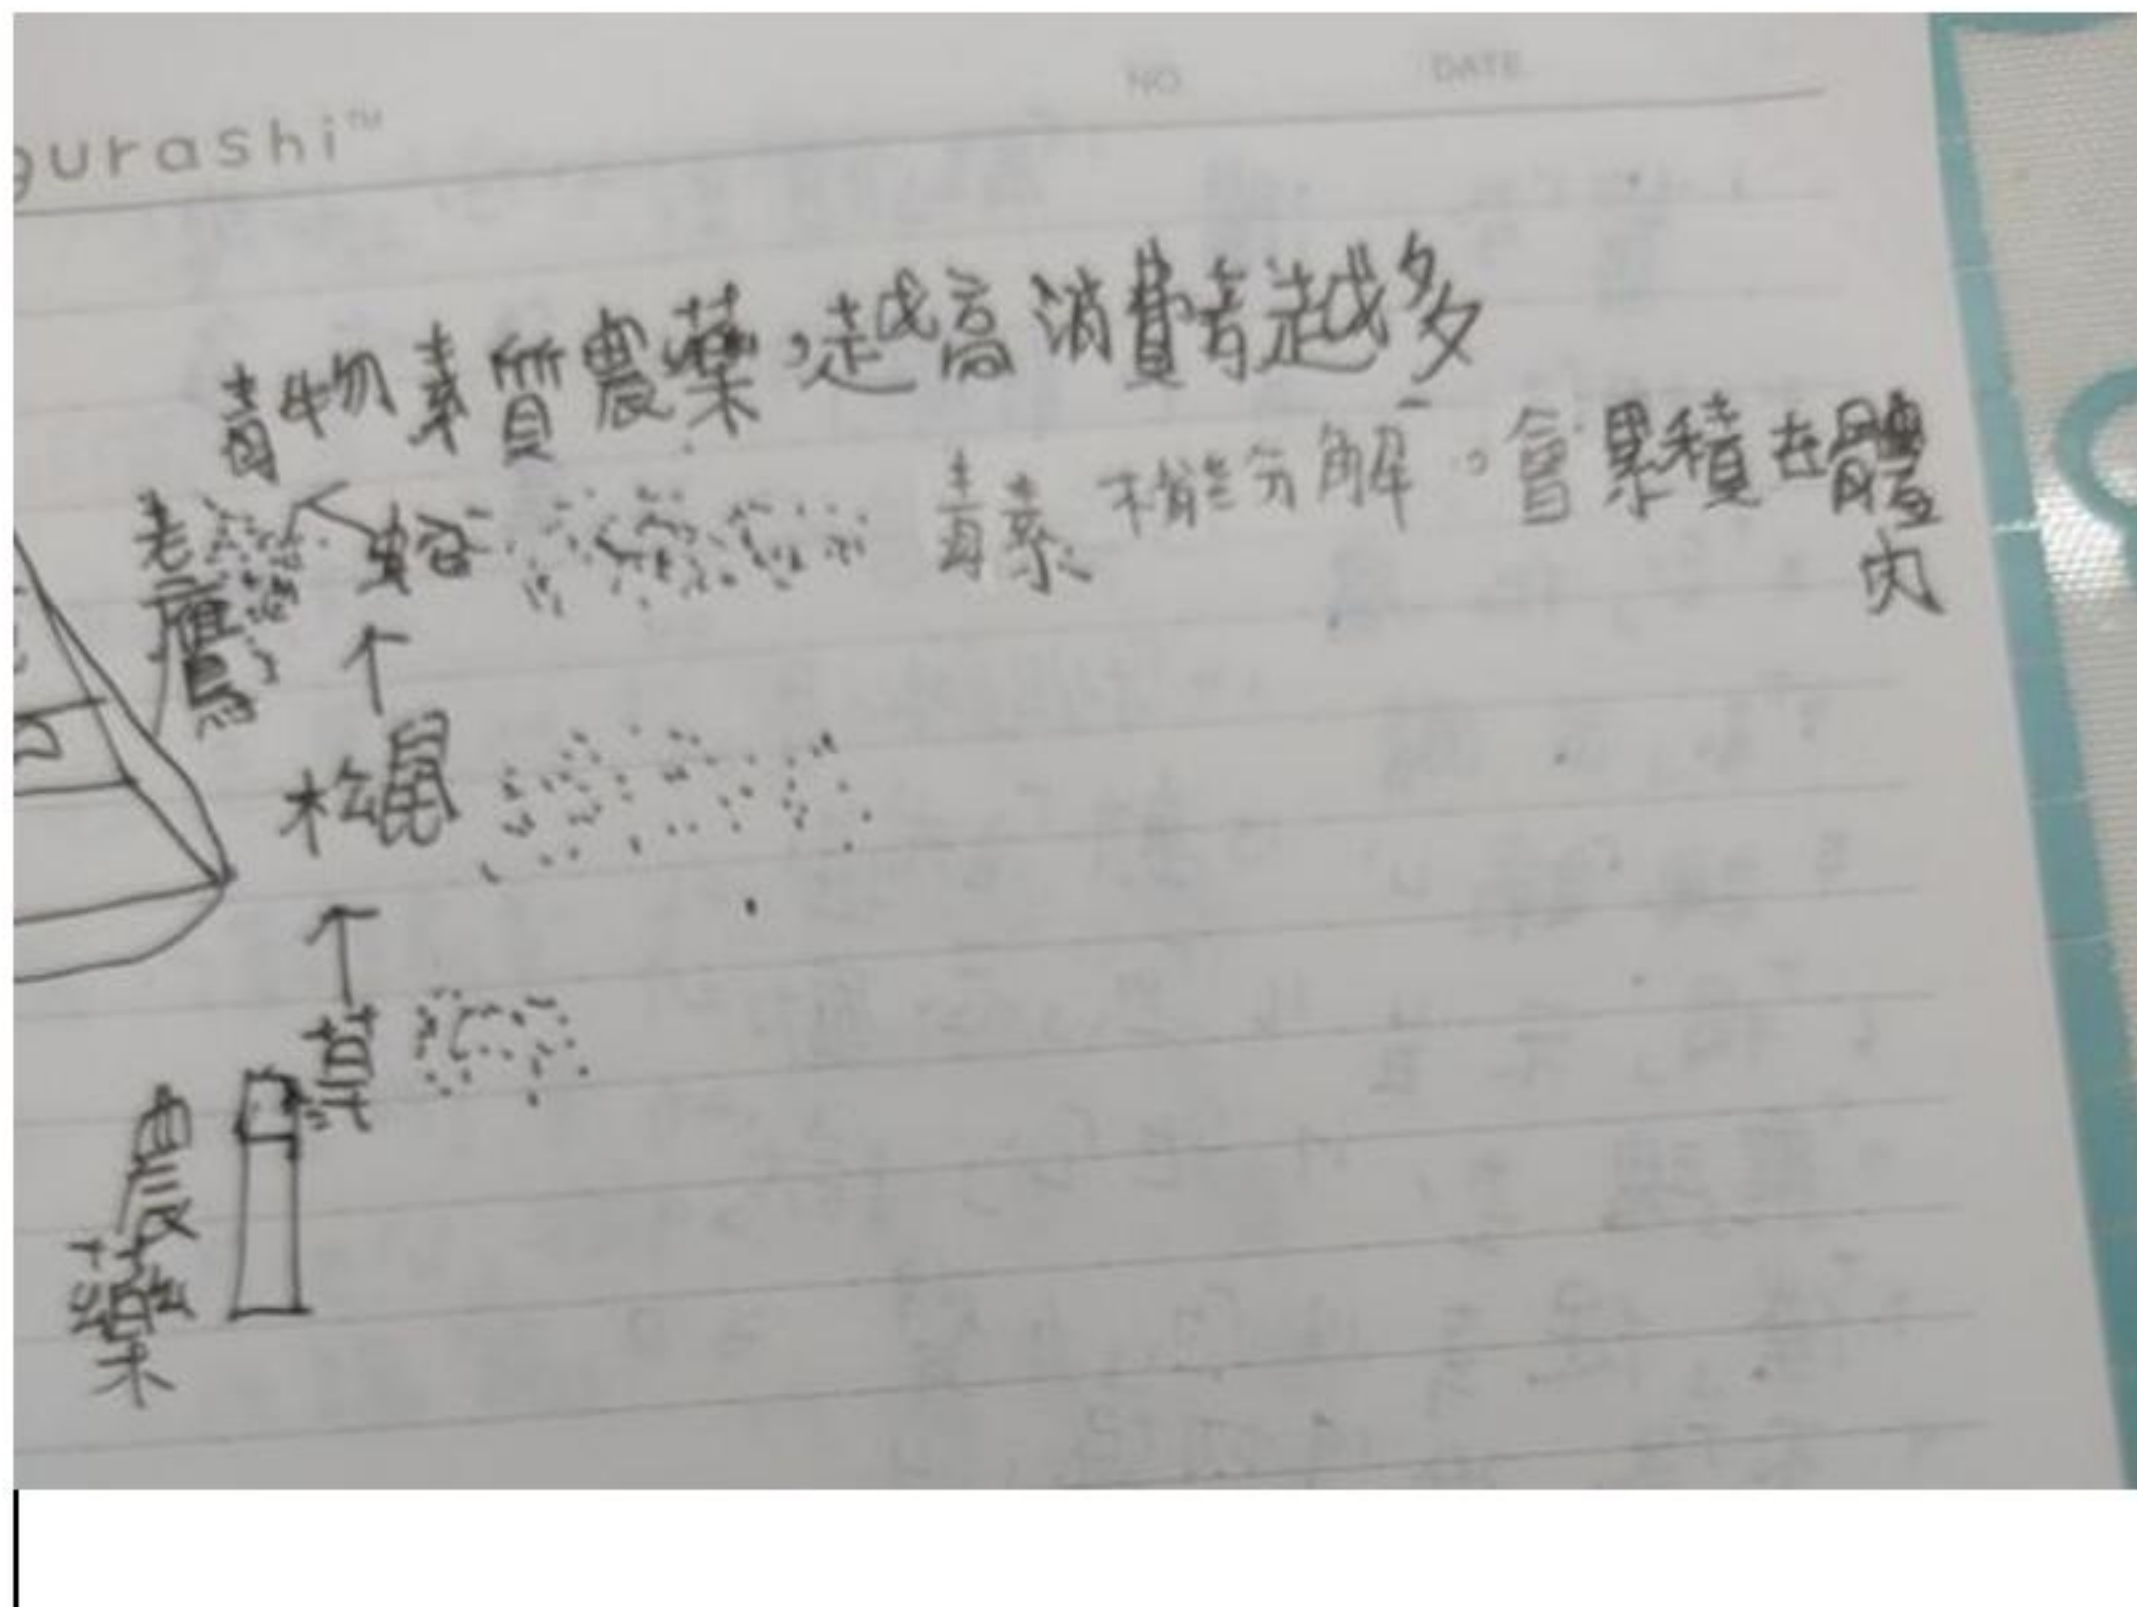 gurashi™
NO. DATE
毒物素質農藥，越高消費者越多
毒素不能分解。會累積在體內
老鷹
蛇
松鼠
草
農藥